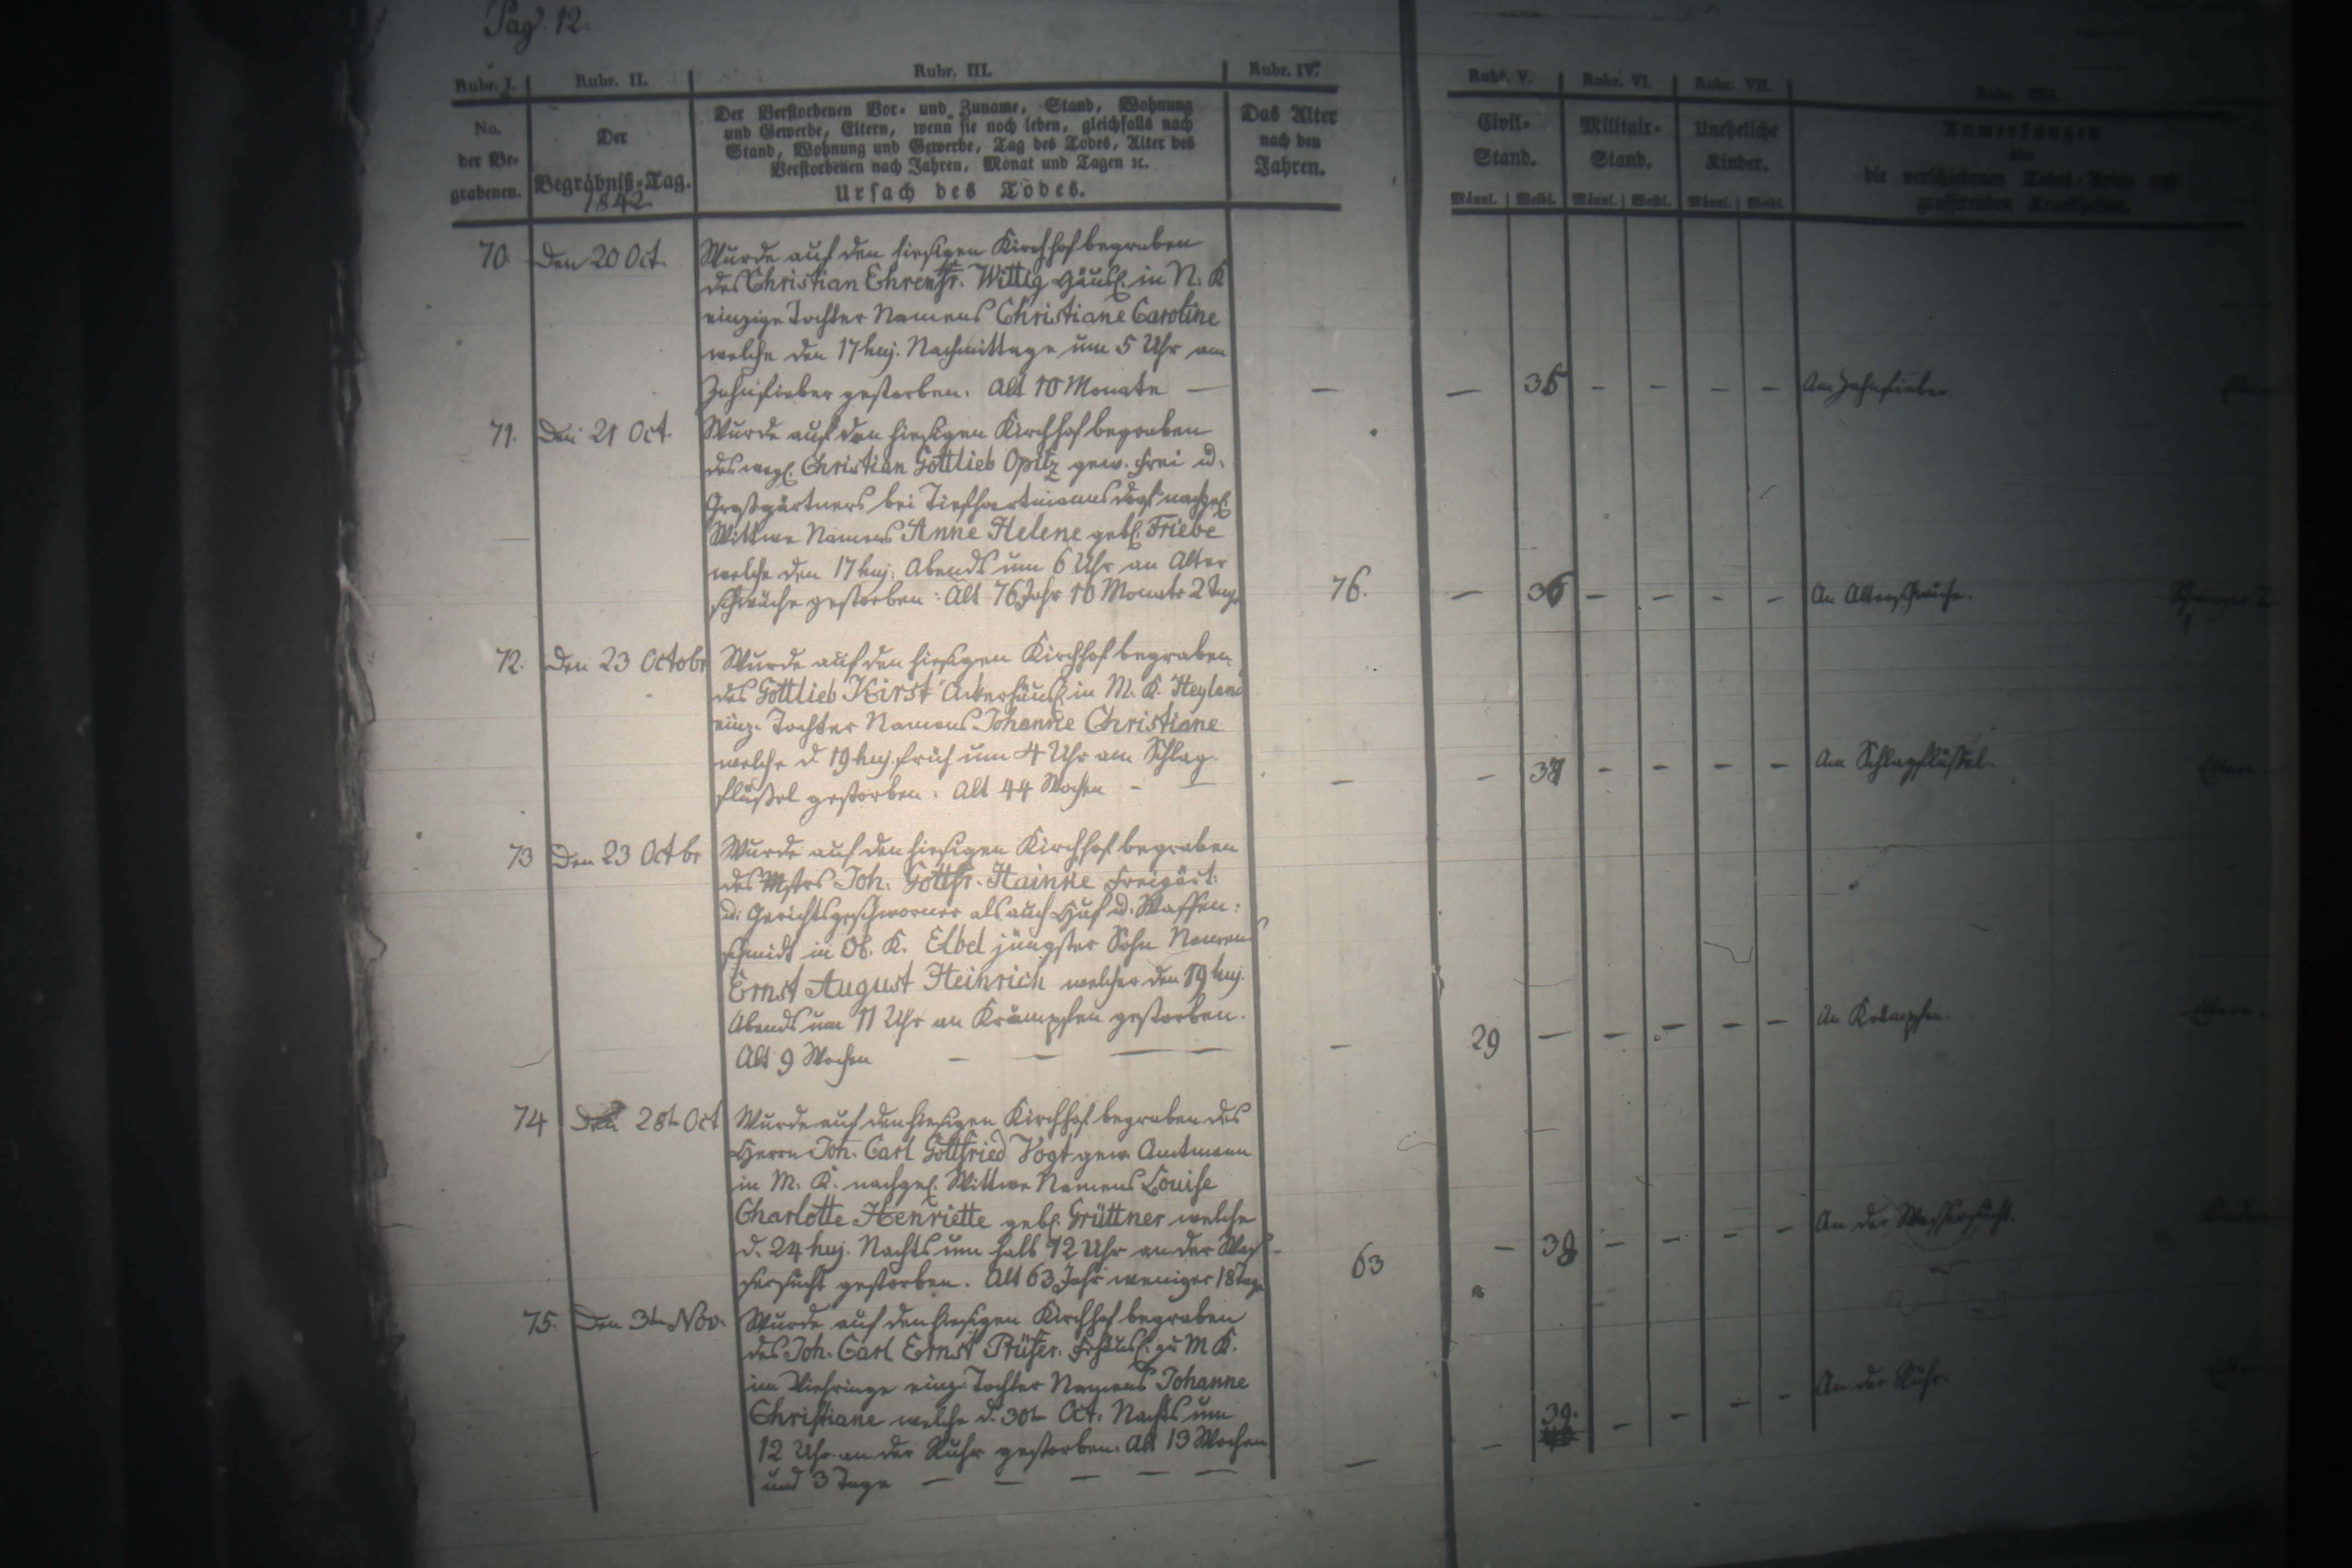 Pag. 12.
Rubr. I. Rubr. II. Rubr. III. Rubr. IV. Rubr. V. Rubr. VI. Rubr. VII. Rubr. VIII.
No. der Be-grabenen.
Der Begräbniß-Tag. 1842
Der Verstorbenen Vor- und Zuname, Stand, Wohnung
und Gewerbe, Eltern, wenn sie noch leben, gleichfalls nach
Stand, Wohnung und Gewerbe, Tag des Todes, Alter des
Verstorbenen nach Jahren, Monat und Tagen ꝛc.
Ursach des Todes.
Das Alter nach den Jahren.
Civil-Stand.
Militair-Stand.
Uneheliche Kinder.
Anmerkungen
über
die verschiedenen Todes-Arten und
grassirenden Krankheiten.
Männl. Weibl. Männl. Weibl. Männl. Weibl.
70. Den 20 Oct. Wurde auf den hiesigen Kirchhof begraben
des Christian Ehrenfr. Wittig Häusl. in N. K
einzige Tochter Namens Christiane Caroline
welche den 17 huj. Nachmittage um 5 Uhr am
Zahnfieber gestorben. Alt 10 Monate — — — 35 - - - - Am Zahnfieber
71. Den 21 Oct. Wurde auf den hiesigen Kirchhof begraben
des weyl. Christian Gottlieb Opitz gew. Frei u.
Großgärtners bei Tiefhartmannsdorf nachgel.
Wittwe Namens Anne Helene geb. Friebe
welche den 17 huj. Abends um 6 Uhr an Alter
schwäche gestorben: Alt 76 Jahr 10 Monate 2 Tage 76. — 36 - - - - An Altersschwäche.
72. Den 23 Octobr Wurde auf den hiesigen Kirchhof begraben
des Gottlieb Kirst Ackerhäusl. in M. K. Heyland
einz. Tochter Namens Johanne Christiane
welche d 19 huj. früh um 4 Uhr am Schlag-
flüßel gestorben. Alt 44 Wochen - — — - 37 - - - - Am Schlagflüßel.
73 Den 23 Octbr Wurde auf den hiesigen Kirchhof begraben
des Mstrs Joh. Gottfr. Hainke Freigärt:
u. Gerichtsgeschworner als auch Huf u. Waffen:
schmidt in Ob. K. Elbel jüngster Sohn Namens
Ernst August Heinrich welcher den 19 huj.
Abends um 11 Uhr an Krämpfen gestorben.
Alt 9 Wochen — — — — 29 — - - - - An Krämpfen.
74 Den 28t Oct Wurde auf den hiesigen Kirchhof begraben des
Herrn Joh. Carl Gottfried Vogt gew. Amtmann
in M. K. nachgel. Wittwe Namens Louise
Charlotte Henriette geb. Grüttner welche
d. 24 huj. Nachts um halb 12 Uhr an der Was-
sersucht gestorben. Alt 63 Jahr weniger 18 Tage 63 - 38 - - - - An der Wassersucht
75. Den 3t Nov. Wurde auf den hiesigen Kirchhof begraben
des Joh. Carl Ernst Prüfer. zu M K.
im Viehringe einz. Tochter Namens Johanne
Christiane welche d. 30t Oct. Nachts um
12 Uhr an der Ruhr gestorben. Alt 13 Wochen
und 3 Tage — — — — — — - 39. - - - - An der Ruhr.